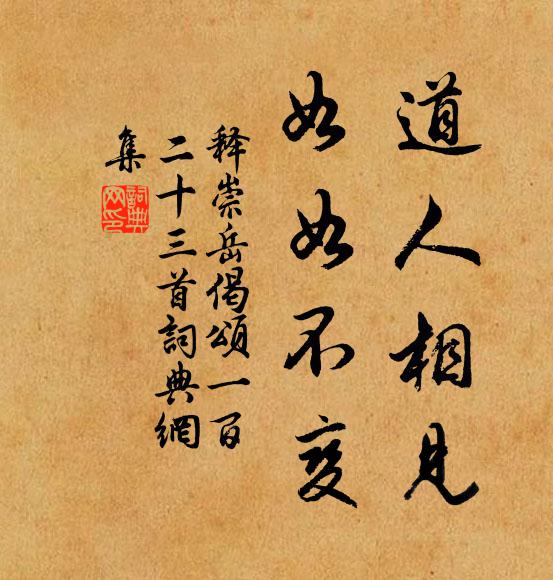 道人相見
如如不变
释崇岳偈頌一百
二十三首詞典網
集
詞典
网印